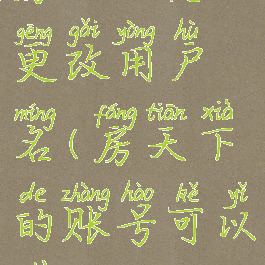 gēng gǎi yòng hù
更改用户
míng fáng tiān xià
名(房天下
de zhàng hào kě yǐ
的账号可以